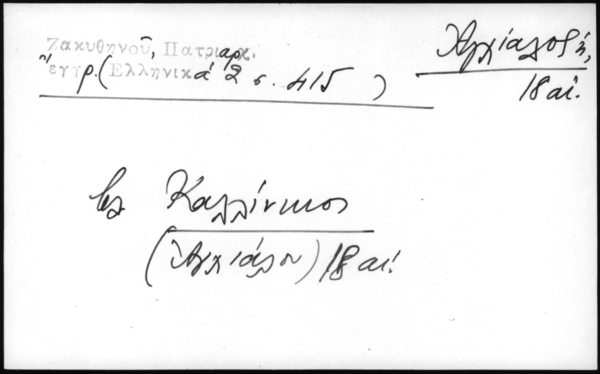 Ζακυθηνοῦ, Πατριαρχ.
ἔγγρ. (Ἑλληνικά 2 σ. 415)
Ἀγχίαλος,
18 αἰ.
βλ Καλλίνικος
(Ἀγχιάλου) 18 αἰ.